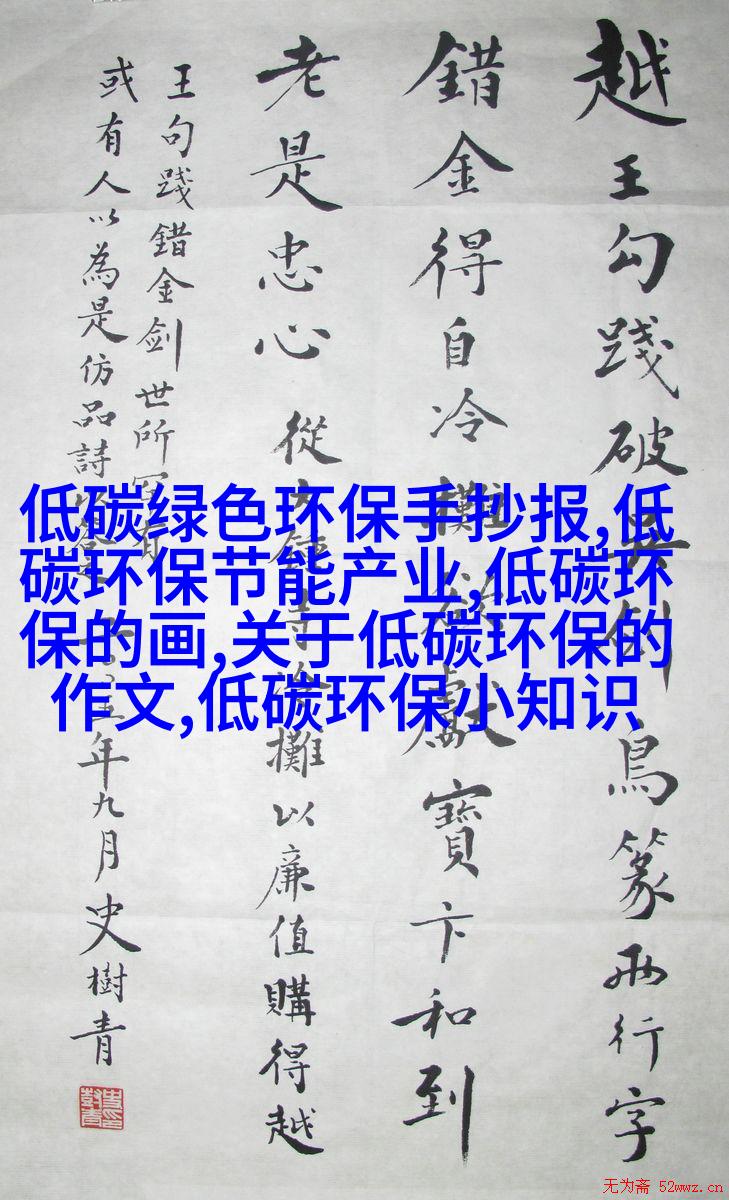 越王勾踐破吴剑鳥篆兩行字
錯金得自冷攤欲獻寶卞和到
老是忠心 從大鐘寺冷攤以廉值購得越
王句踐錯金剑世所罕有
或有人以為是仿品詩以 五年九月史樹青
低碳绿色环保手抄报,低
碳环保节能产业,低碳环
保的画,关于低碳环保的
作文,低碳环保小知识
无为斋 52wwz.cn